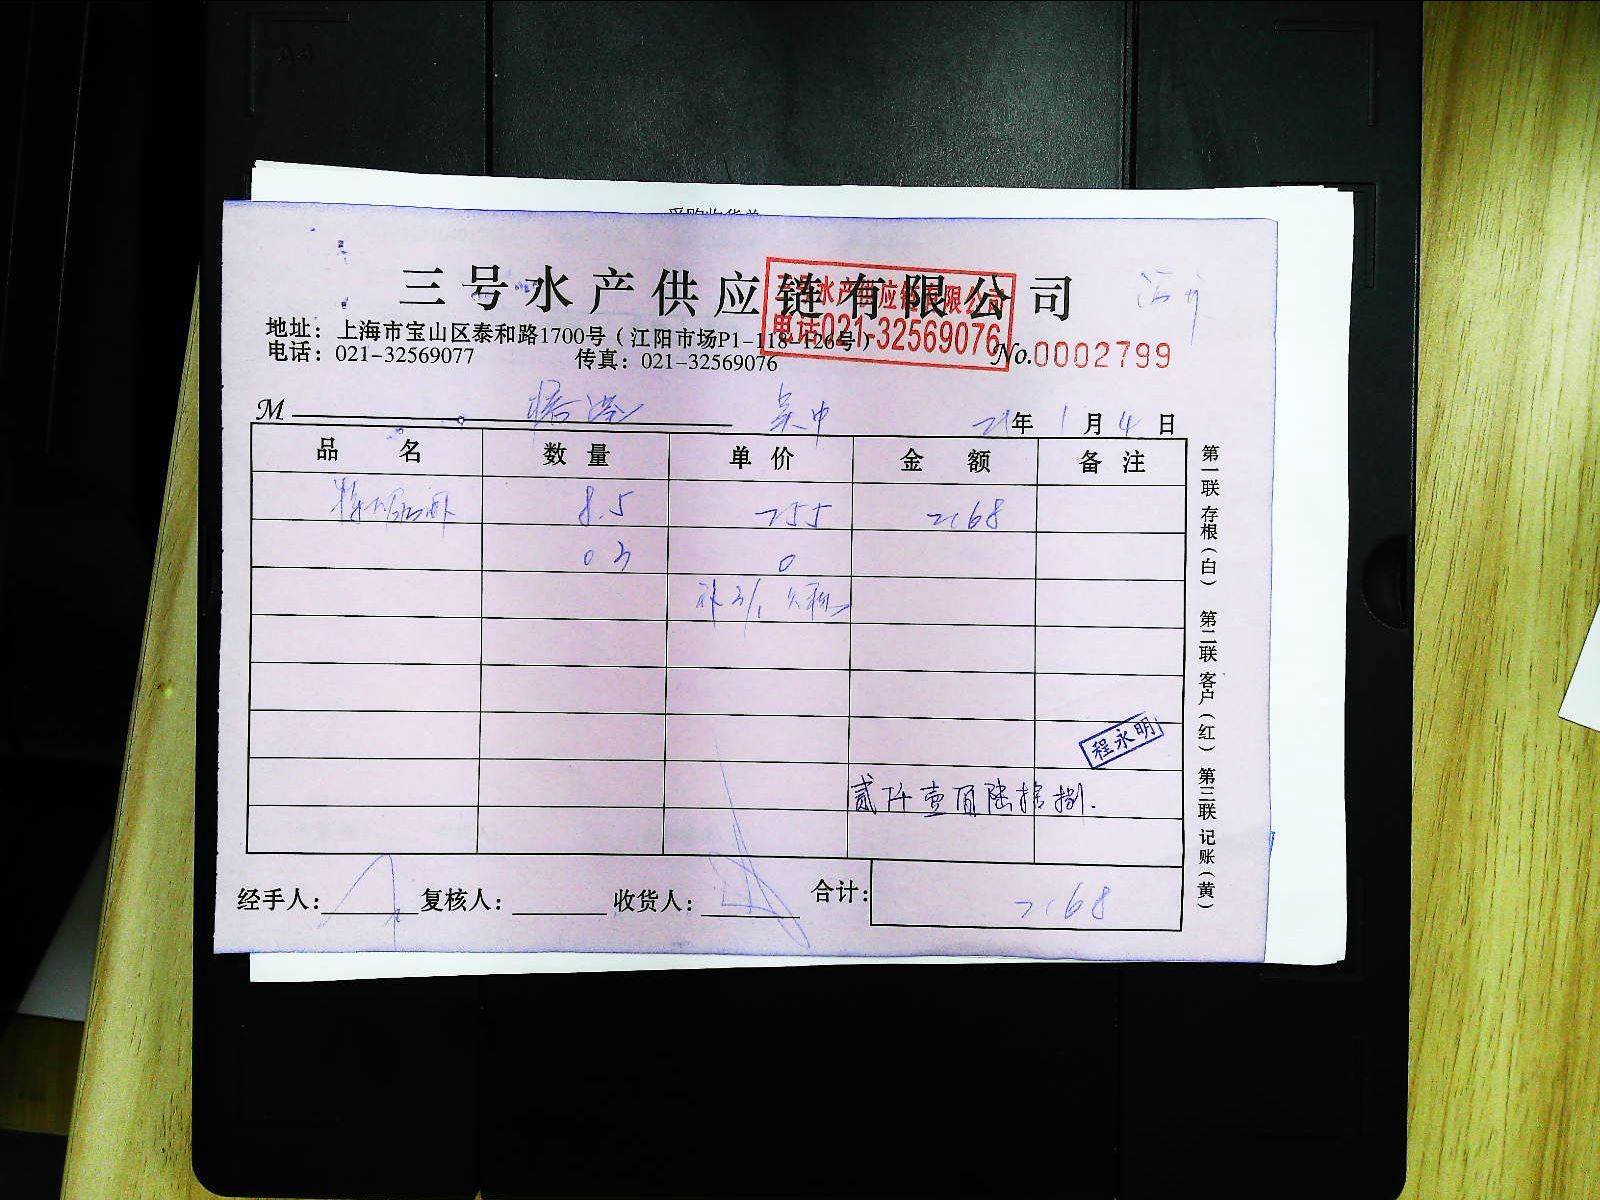 三号水产供应链有限公司
三号水产供应链有限公司
电话021-32569076
地址：上海市宝山区泰和路1700号（江阳市场P1-118-126号）
电话：021-32569077 传真：021-32569076
No.0002799
M 吴中 21年1月4日
品名 数量 单价 金额 备注
8.5 255 2168
0.3 0
程永明
贰仟壹百陆拾捌.
经手人： 复核人： 收货人： 合计： 2168
第一联 存根（白） 第二联 客户（红） 第三联 记账（黄）